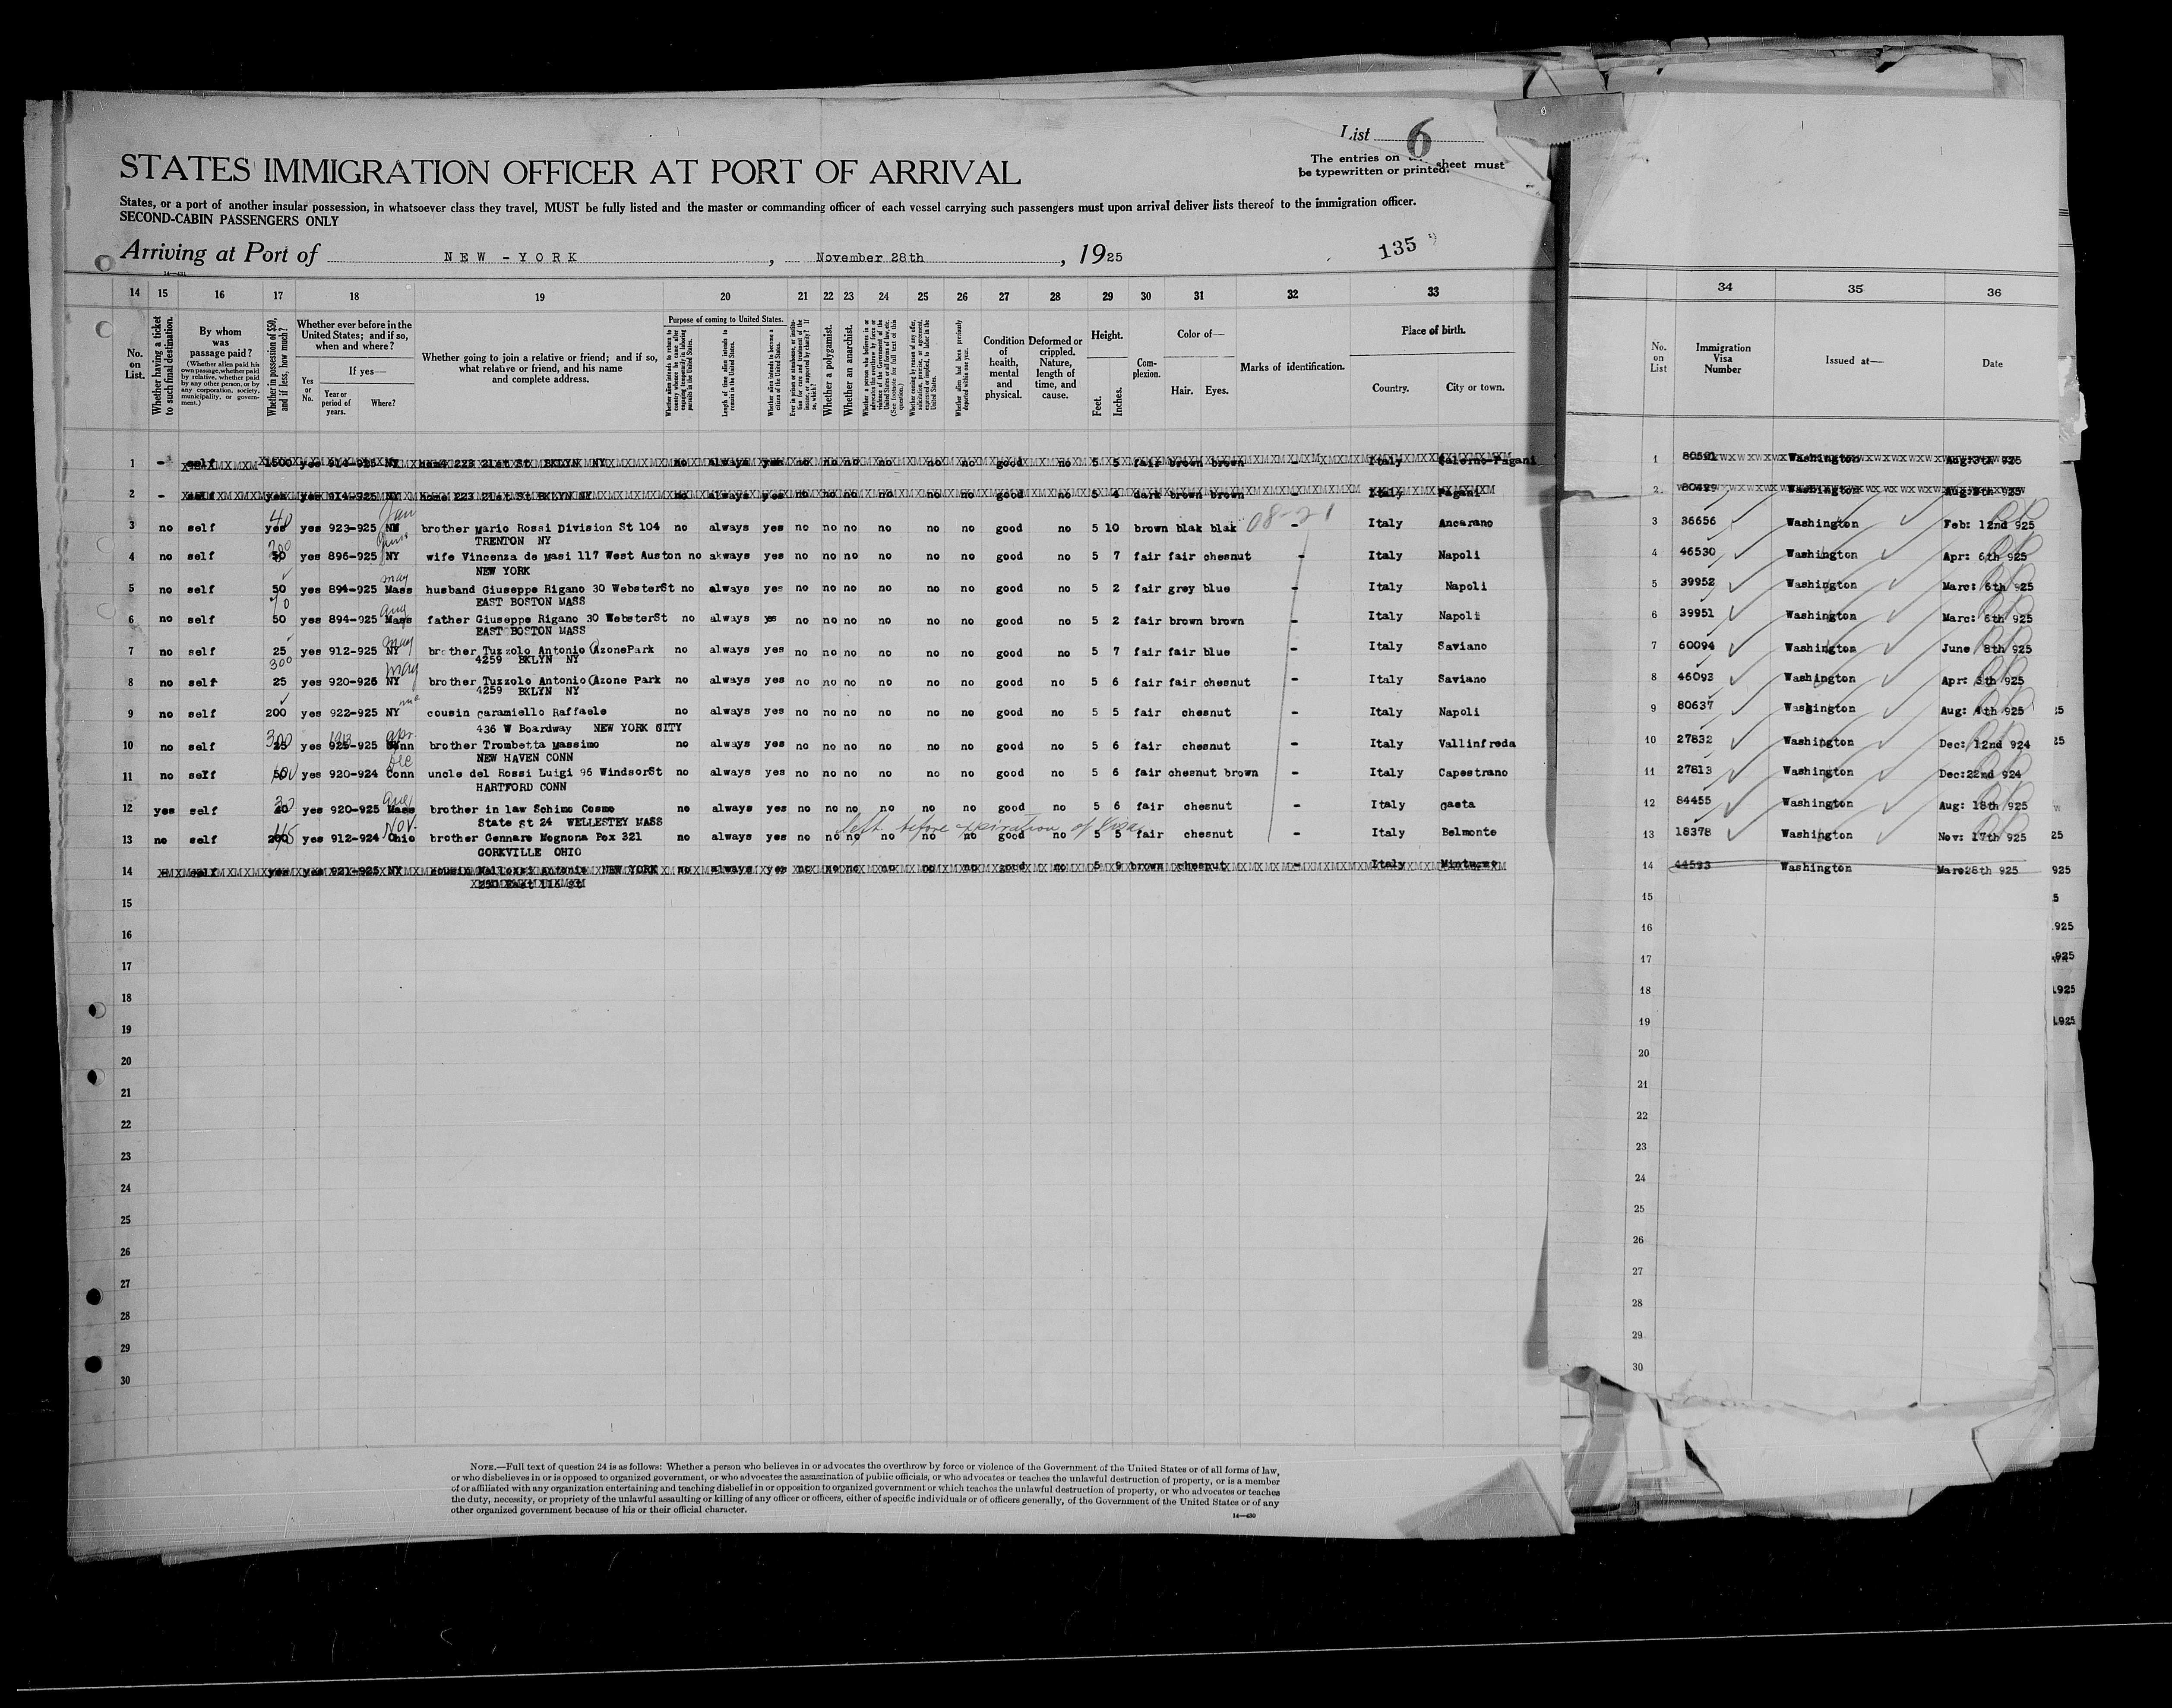 List 6
STATES IMMIGRATION OFFICER AT PORT OF ARRIVAL
The entries on sheet must
be typewritten or printed.
States, or a port of another insular possession, in whatsoever class they travel, MUST be fully listed and the master or commanding officer of each vessel carrying such passengers must upon arrival deliver lists thereof to the immigration officer.
SECOND-CABIN PASSENGERS ONLY
Arriving at Port of NEW - YORK , November 28th , 1925
135
14 15 16 17 18 19 20 21 22 23 24 25 26 27 28 29 30 31 32 33 34 35 36
No. on List.
Whether having a ticket to such final destination.
By whom was passage paid?
(Whether alien paid his own passage, whether paid by relative, whether paid by any other person, or by any corporation, society, municipality, or government.)
Whether in possession of $50, and if less, how much?
Whether ever before in the United States; and if so, when and where?
If yes—
Yes or No.
Year or period of years.
Where?
Whether going to join a relative or friend; and if so, what relative or friend, and his name and complete address.
Purpose of coming to United States.
Whether alien intends to return to country whence he came after engaging temporarily in laboring pursuits in the United States.
Length of time alien intends to remain in the United States.
Whether alien intends to become a citizen of the United States.
Whether a polygamist.
Whether an anarchist.
Condition of health, mental and physical.
Deformed or crippled. Nature, length of time, and cause.
Height.
Feet. Inches.
Complexion.
Color of—
Hair. Eyes.
Marks of identification.
Place of birth.
Country. City or town.
No. on List
Immigration Visa Number
Issued at—
Date
1 - self 1500 yes 914-925 NY home 223 21st St BKLYN NY no always yes no no no no no no good no 5 5 fair brown brown - Italy Salerno-Pagani 1 80591 Washington
2 - yes yes 914-925 NY home 223 21st St BKLYN NY no always yes no no no no no no good no 5 4 dark brown brown - Italy Pagani 2 Washington
40 Jan
3 no self yes yes 923-925 brother Mario Rossi Division St 104 no always yes no no no no no no good no 5 10 brown blak blak - Italy Ancarano 3 36656 Washington Feb: 12nd 925
TRENTON NY
4 no self 50 yes 896-925 NY wife Vincenza de Masi 117 West Auston no akways yes no no no no no no good no 5 7 fair fair chesnut - Italy Napoli 4 46530 Washington Apr: 6th 925
NEW YORK
may
5 no self 50 yes 894-925 Mass husband Giuseppe Rigano 30 WebsterSt no always yes no no no no no no good no 5 2 fair grey blue - Italy Napoli 5 39952 Washington Marc: 6th 925
EAST BOSTON MASS
70 aug
6 no self 50 yes 894-925 Mass father Giuseppe Rigano 30 WebsterSt no always yes no no no no no no good no 5 2 fair brown brown - Italy Napoli 6 39951 Washington Marc: 6th 925
EAST BOSTON MASS
may
7 no self 25 yes 912-925 NY brother Tuzzolo Antonio OzonePark no always yes no no no no no no good no 5 7 fair fair blue - Italy Saviano 7 60094 Washington June 8th 925
4259 BKLYN NY
300 may
8 no self 25 yes 920-925 NY brother Tuzzolo Antonio Ozone Park no always yes no no no no no no good no 5 6 fair fair chesnut - Italy Saviano 8 46093 Washington Apr: 3th 925
4259 BKLYN NY
9 no self 200 yes 922-925 NY cousin Caramiello Raffaele no always yes no no no no no no good no 5 5 fair chesnut - Italy Napoli 9 80637 Washington Aug: 4th 925
436 W Boardway NEW YORK SITY
300 1913 apr.
10 no self 25 yes 925-925 Conn brother Trombetta Massimo no always yes no no no no no no good no 5 6 fair chesnut - Italy Vallinfreda 10 27832 Washington Dec: 12nd 924
NEW HAVEN CONN
Dec
11 no self 50 yes 920-924 Conn uncle del Rossi Luigi 96 WindsorSt no always yes no no no no no no good no 5 6 fair chesnut brown - Italy Capestrano 11 27813 Washington Dec:22nd 924
HARTFORD CONN
30 aug
12 yes self yes 920-925 Mass brother in law Schimo Cosmo no always yes no no no no no no good no 5 6 fair chesnut - Italy Gaeta 12 84455 Washington Aug: 18th 925
State st 24 WELLESTEY MASS
Nov. left before expiration of visa
13 no self 200 yes 912-924 Ohio brother Gennare Mognona Pox 321 no always yes no no no no no no good no 5 5 fair chesnut - Italy Belmonte 13 18378 Washington Nov: 17th 925
GORKVILLE OHIO
14 self yes yes 921-925 NY cousin Antonio NEW YORK no always yes no no no no no no good no 5 9 brown chesnut - Italy Minturno 14 44593 Washington Marc28th 925
250 East 116 st
15 15
16 16
17 17
18 18
19 19
20 20
21 21
22 22
23 23
24 24
25 25
26 26
27 27
28 28
29 29
30 30
NOTE.—Full text of question 24 is as follows: Whether a person who believes in or advocates the overthrow by force or violence of the Government of the United States or of all forms of law,
or who disbelieves in or is opposed to organized government, or who advocates the assassination of public officials, or who advocates or teaches the unlawful destruction of property, or is a member
of or affiliated with any organization entertaining and teaching disbelief in or opposition to organized government or which teaches the unlawful destruction of property, or who advocates or teaches
the duty, necessity, or propriety of the unlawful assaulting or killing of any officer or officers, either of specific individuals or of officers generally, of the Government of the United States or of any
other organized government because of his or their official character.
14—430